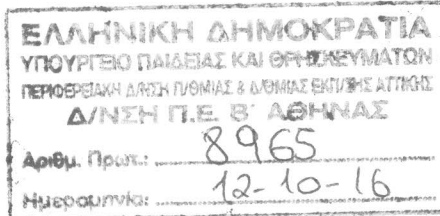 ΕΛΛΗΝΙΚΗ ΔΗΜΟΚΡΑΤΙΑ
ΥΠΟΥΡΓΕΙΟ ΠΑΙΔΕΙΑΣ ΚΑΙ ΘΡΗΣΚΕΥΜΑΤΩΝ
ΠΕΡΙΦΕΡΕΙΑΚΗ Δ/ΝΣΗ Π/ΘΜΙΑΣ & Δ/ΘΜΙΑΣ ΕΚΠ/ΣΗΣ ΑΤΤΙΚΗΣ
Δ/ΝΣΗ Π.Ε. Β΄ ΑΘΗΝΑΣ
Αριθμ. Πρωτ.: 8965
Ημερομηνία: 12-10-16